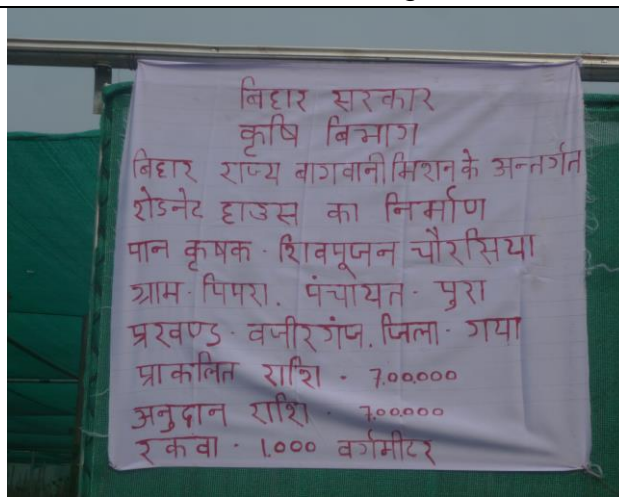 बिहार सरकार
कृषि विभाग
बिहार राज्य बागवानी मिशन के अन्तर्गत
शेडनेट हाउस का निर्माण
पान कृषक - शिवपूजन चौरसिया
ग्राम - पिपरा, पंचायत - पुरा
प्रखण्ड - वजीरगंज, जिला - गया
प्राकलित राशि - 7,00,000
अनुदान राशि - 7,00,000
रकवा - 1,000 वर्गमीटर